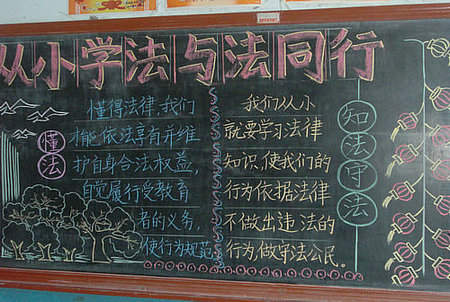 从小学法与法同行
懂法
懂得法律，我们
才能依法享有并维
护自身合法权益，
自觉履行受教育
者的义务，
使行为规范。
我们从小
就要学习法律
知识，使我们的
行为依据法律
不做出违法的
行为，做守法公民。
知法守法